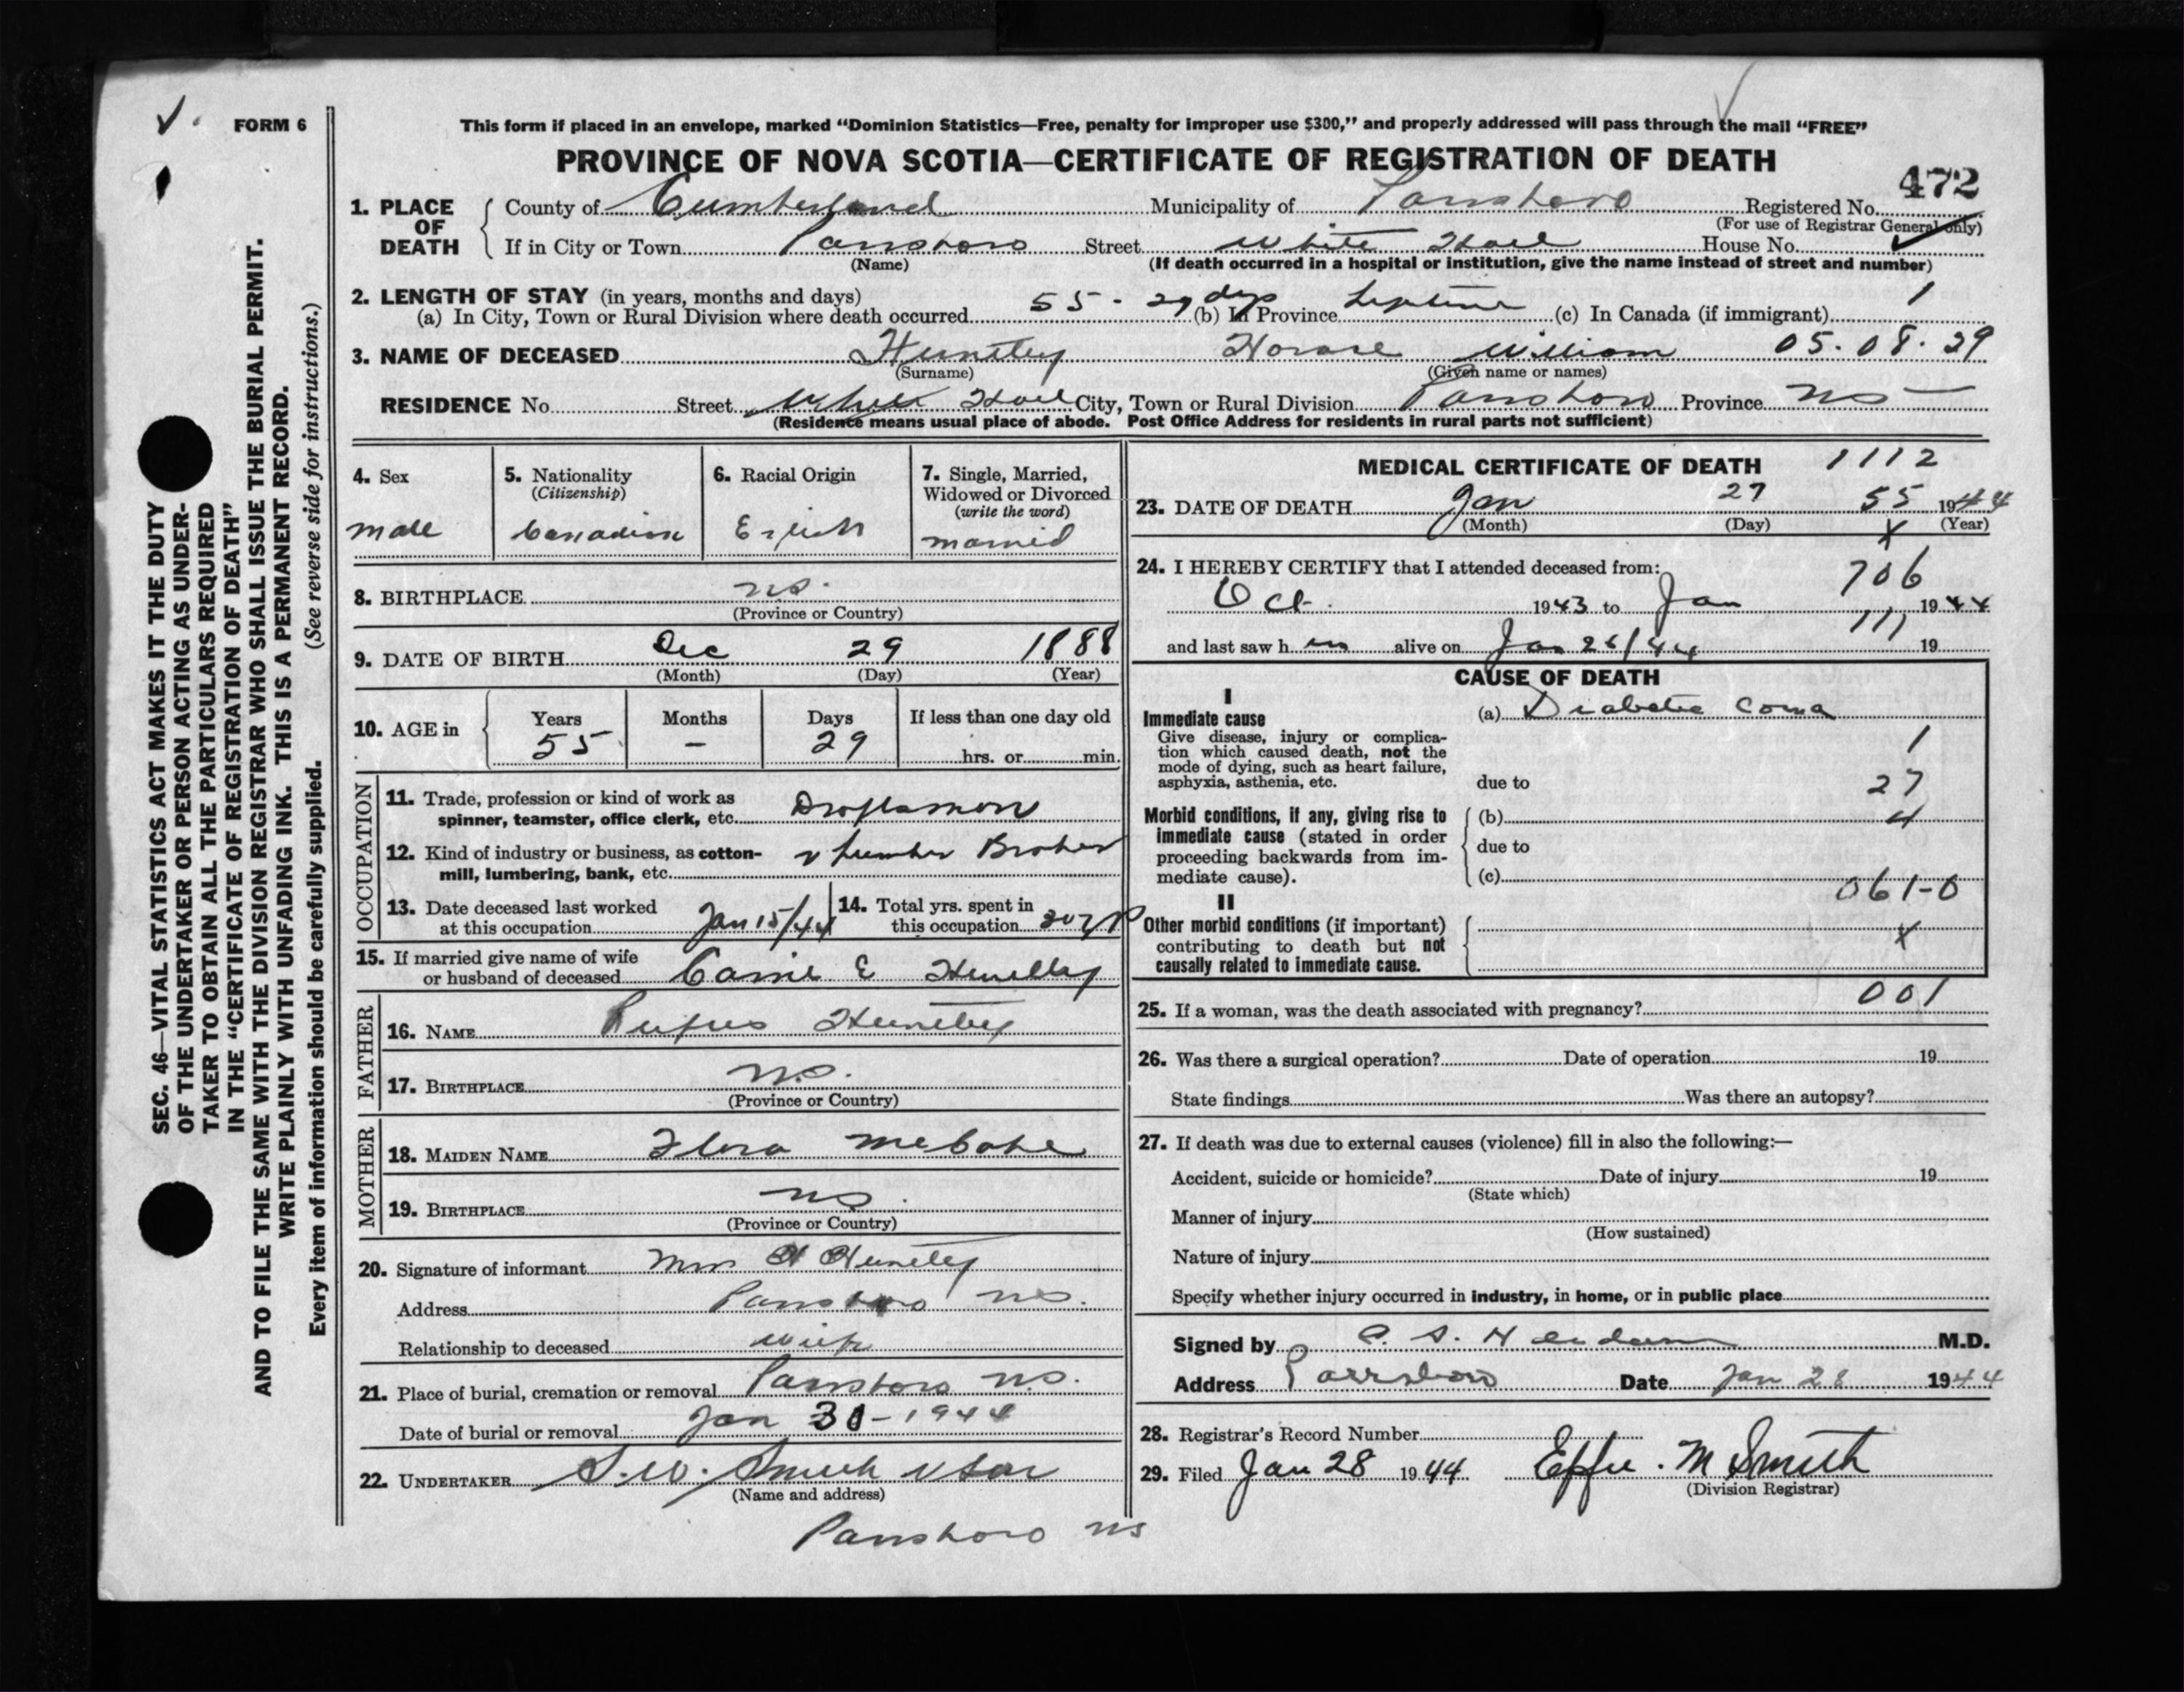 FORM 6
This form if placed in an envelope, marked "Dominion Statistics—Free, penalty for improper use $300," and properly addressed will pass through the mail "FREE"
PROVINCE OF NOVA SCOTIA—CERTIFICATE OF REGISTRATION OF DEATH
472
1. PLACE OF DEATH
County of Cumberland Municipality of Parrsboro Registered No.
(For use of Registrar General only)
If in City or Town Parrsboro Street White Hall House No.
(Name) (If death occurred in a hospital or institution, give the name instead of street and number)
2. LENGTH OF STAY (in years, months and days)
(a) In City, Town or Rural Division where death occurred 55 - 29 dys (b) In Province Lifetime (c) In Canada (if immigrant) 1
3. NAME OF DECEASED Huntley Horace William 05.08.29
(Surname) (Given name or names)
RESIDENCE No Street White Hall City, Town or Rural Division Parrsboro Province NS
(Residence means usual place of abode. Post Office Address for residents in rural parts not sufficient)
4. Sex
male
5. Nationality
(Citizenship)
Canadian
6. Racial Origin
English
7. Single, Married,
Widowed or Divorced
(write the word)
married
8. BIRTHPLACE NS.
(Province or Country)
9. DATE OF BIRTH Dec 29 1888
(Month) (Day) (Year)
10. AGE in
Years Months Days If less than one day old
55 - 29 hrs. or min.
OCCUPATION
11. Trade, profession or kind of work as
spinner, teamster, office clerk, etc. Draftsman
12. Kind of industry or business, as cotton-
mill, lumbering, bank, etc. & Lumber Broker
13. Date deceased last worked
at this occupation Jan 15/44
14. Total yrs. spent in
this occupation
15. If married give name of wife
or husband of deceased Carrie E Huntley
FATHER
16. NAME Rufus Huntley
17. BIRTHPLACE N.S.
(Province or Country)
MOTHER
18. MAIDEN NAME Flora McCabe
19. BIRTHPLACE NS.
(Province or Country)
20. Signature of informant Mrs H Huntley
Address Parrsboro NS.
Relationship to deceased wife
21. Place of burial, cremation or removal Parrsboro N.S.
Date of burial or removal Jan 30-1944
22. UNDERTAKER S.W. Smith & Son
(Name and address)
Parrsboro NS
MEDICAL CERTIFICATE OF DEATH 1112
23. DATE OF DEATH Jan 27 55 1944
(Month) (Day) X (Year)
24. I HEREBY CERTIFY that I attended deceased from: 706
Oct. 1943 to Jan 1944
111
and last saw h im alive on Jan 26/44 19
CAUSE OF DEATH
I
Immediate cause
Give disease, injury or complica-
tion which caused death, not the
mode of dying, such as heart failure,
asphyxia, asthenia, etc.
(a) Diabetic Coma
1
due to 27
Morbid conditions, if any, giving rise to
immediate cause (stated in order
proceeding backwards from im-
mediate cause).
(b) 4
due to
(c)
061-0
II
Other morbid conditions (if important)
contributing to death but not
causally related to immediate cause.
X
25. If a woman, was the death associated with pregnancy? 001
26. Was there a surgical operation? Date of operation 19
State findings Was there an autopsy?
27. If death was due to external causes (violence) fill in also the following:—
Accident, suicide or homicide? Date of injury 19
(State which)
Manner of injury
(How sustained)
Nature of injury
Specify whether injury occurred in industry, in home, or in public place
Signed by M.D.
Address Parrsboro Date Jan 28 1944
28. Registrar's Record Number
29. Filed Jan 28 1944 Effie. M Smith
(Division Registrar)
SEC. 46—VITAL STATISTICS ACT MAKES IT THE DUTY
OF THE UNDERTAKER OR PERSON ACTING AS UNDER-
TAKER TO OBTAIN ALL THE PARTICULARS REQUIRED
IN THE "CERTIFICATE OF REGISTRATION OF DEATH"
AND TO FILE THE SAME WITH THE DIVISION REGISTRAR WHO SHALL ISSUE THE BURIAL PERMIT.
WRITE PLAINLY WITH UNFADING INK. THIS IS A PERMANENT RECORD.
Every item of information should be carefully supplied. (See reverse side for instructions.)